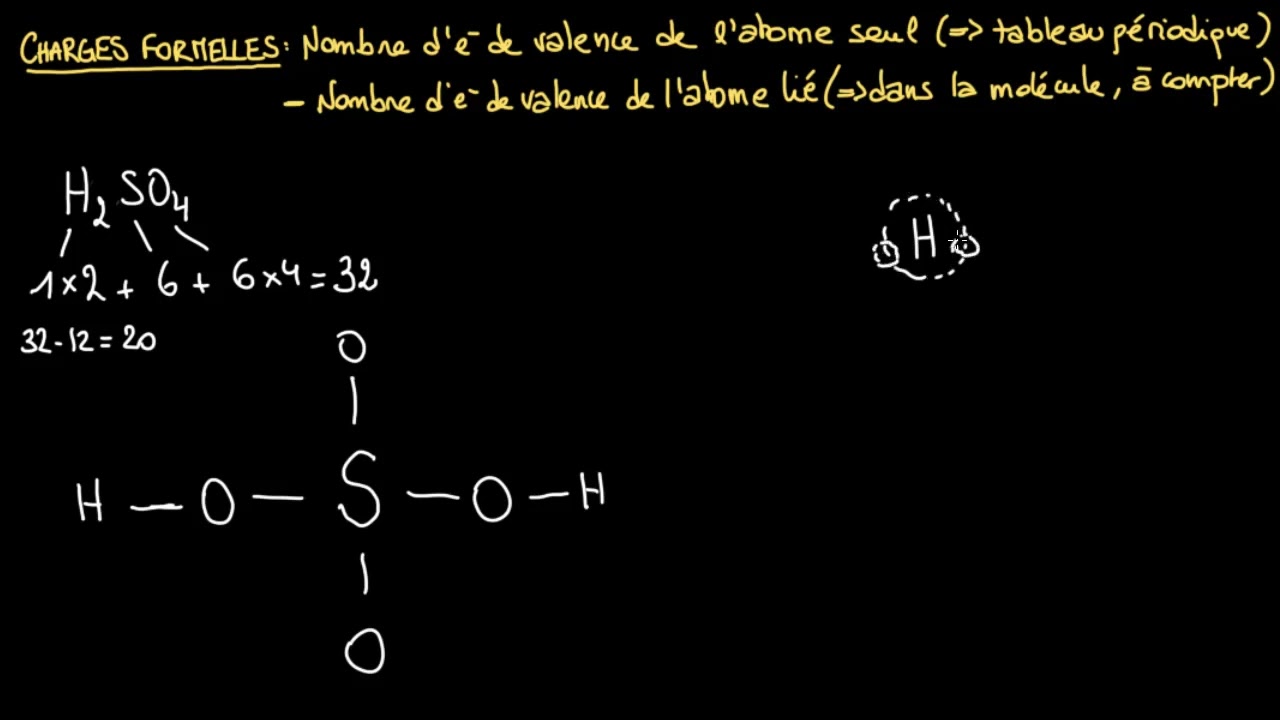 CHARGES FORMELLES: Nombre d'e- de valence de l'atome seul (=> tableau périodique)
- Nombre d'e- de valence de l'atome lié (=> dans la molécule, à compter)
H2SO4
1×2 + 6 + 6×4 = 32
32-12 = 20
H
O
H — O — S — O — H
O